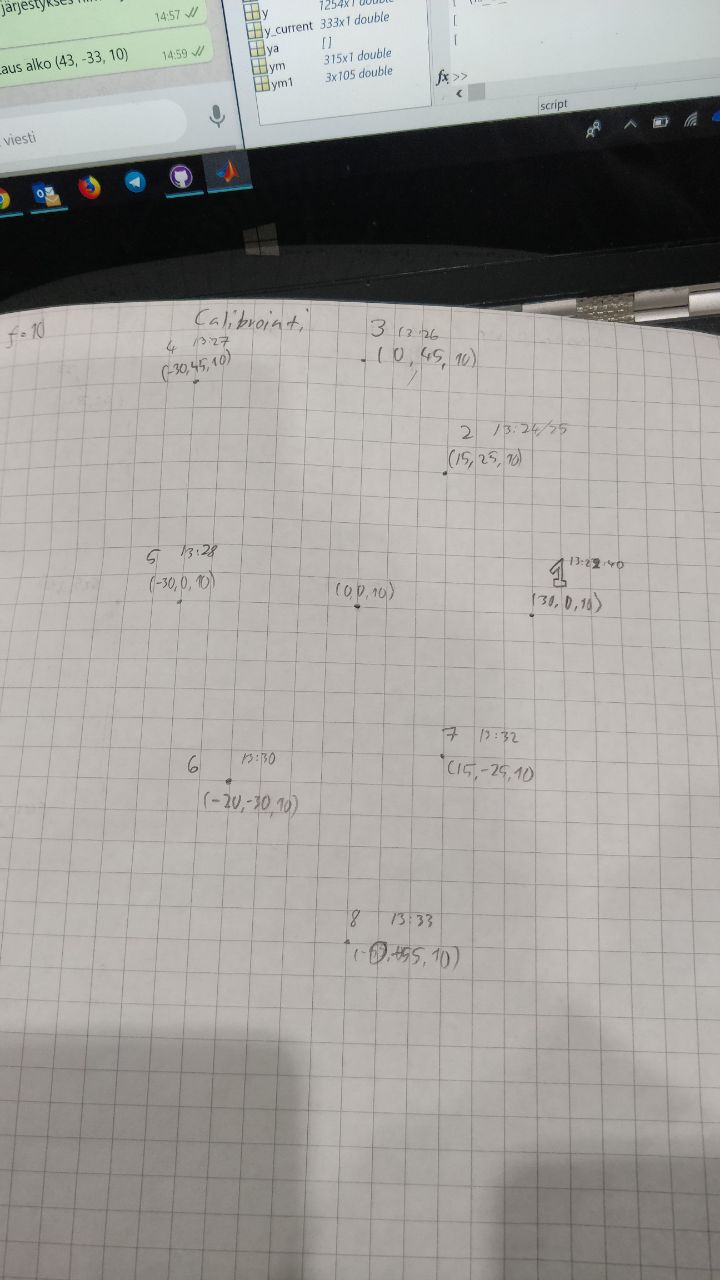 järjestykses
14:57
aus alko (43, -33, 10)
14:59
viesti
y 1254x1 double
y_current 333x1 double
ya []
ym 315x1 double
ym1 3x105 double
fx >>
script
f=10
Calibrointi
3 13:26
(0, 45, 10)
4 13:27
(-30,45,10)
2 13:24/25
(15, 25, 10)
5 13:28
(-30,0,10)
(0,0,10)
1
(30, 0, 10)
7 13:32
(15,-25,10
6 13:30
(-20,-30,10)
8 13:33